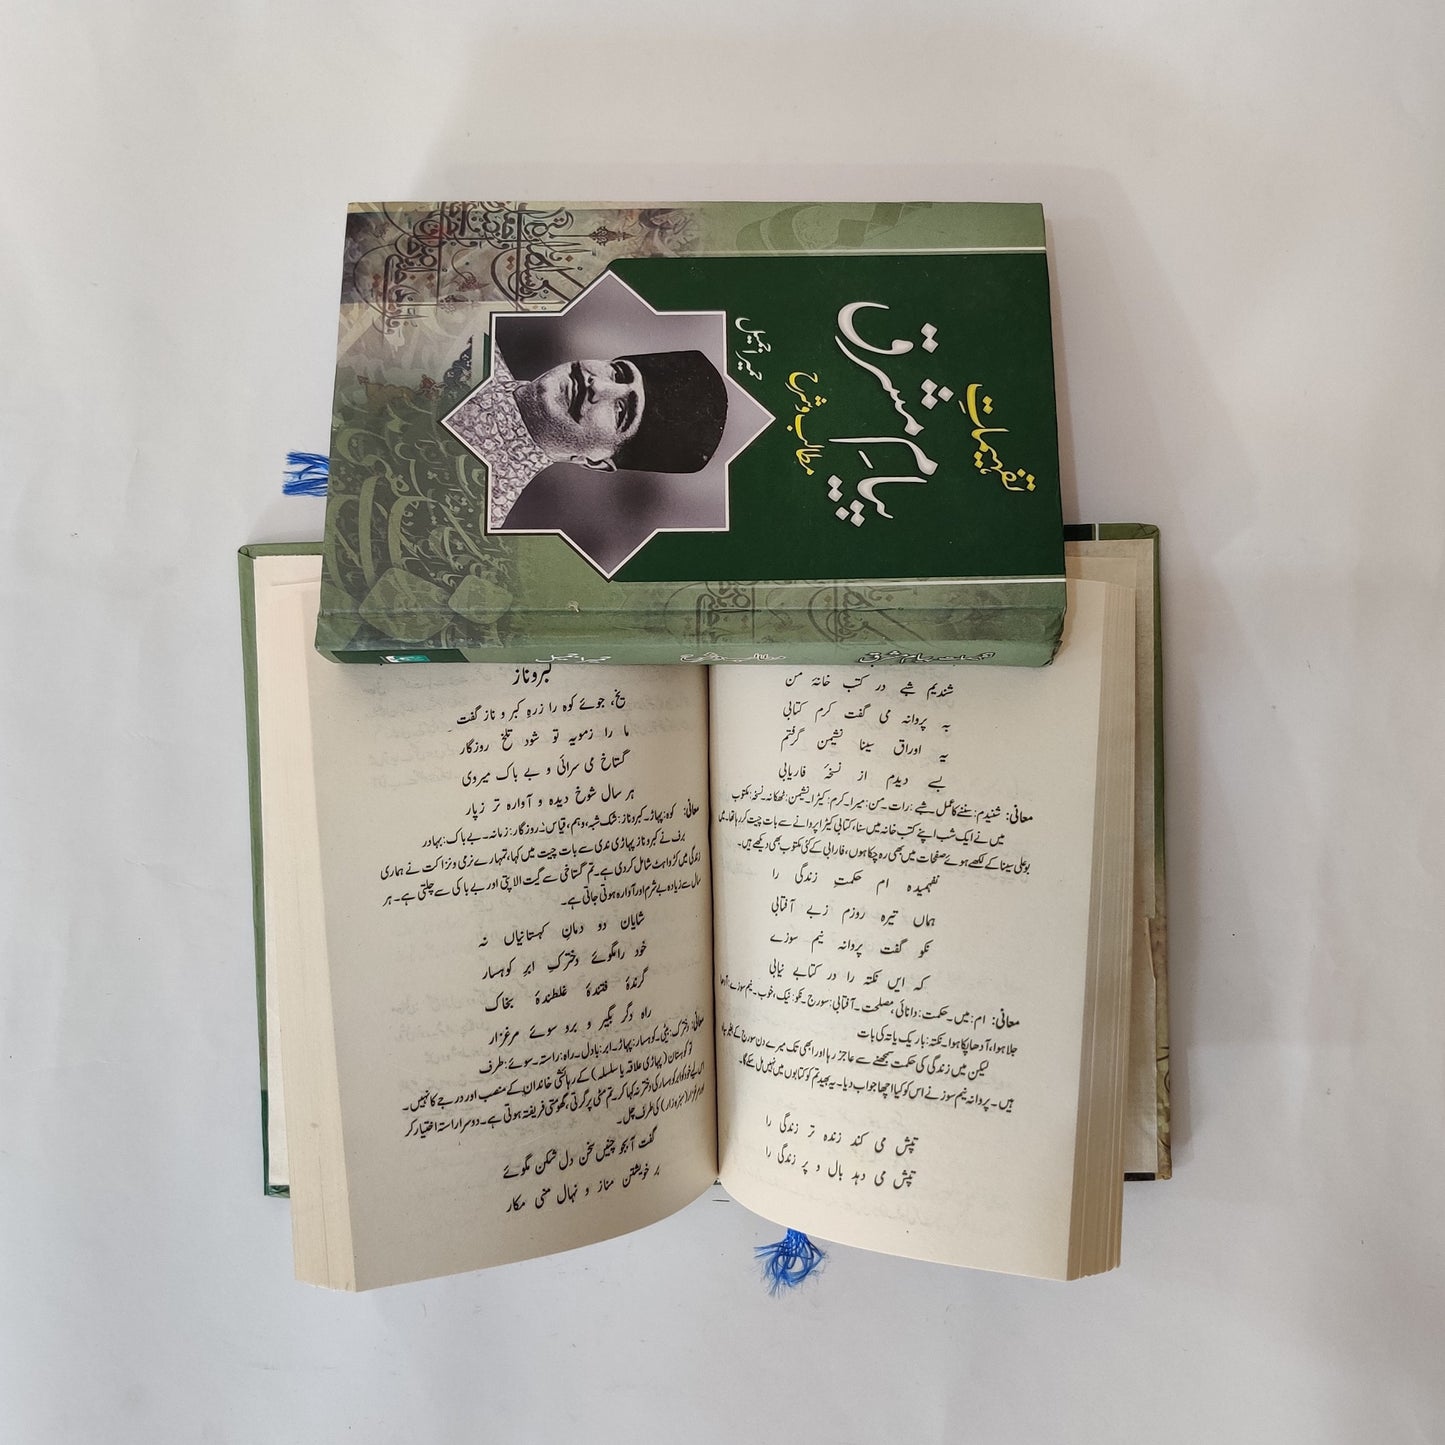 تفہیماتِ
پیامِ مشرق
مطالب و شرح
حمیرا جمیل
تفہیمات پیام مشرق
مطالب و شرح
حمیرا جمیل
شندیم شبے در کتب خانۂ من
بہ پروانہ می گفت کرم کتابی
بہ اوراق سینا نشیمن گرفتم
بے دیدم از نسخۂ فاریابی
معانی: شنیدم: سننے کا عمل شبے: رات۔ من: میرا۔ کرم: کیڑا۔ نشیمن: ٹھکانہ۔ نسخہ: مکتوب
میں نے ایک شب اپنے کتب خانہ میں سنا، کتابی کیڑا پروانے سے بات چیت کر رہا تھا۔ میں
بو علی سینا کے لکھے ہوئے صفحات میں بھی رہ چکا ہوں، فارابی کے کئی مکتوب بھی دیکھے ہیں۔
نفہمیدہ ام حکمتِ زندگی را
ہماں تیرہ روزم زبے آفتابی
نکو گفت پروانہ نیم سوزے
کہ ایں نکتہ را در کتابے نیابی
معانی: ام: میں۔ حکمت: دانائی، مصلحت۔ آفتابی: سورج۔ نکو: نیک، خوب۔ نیم سوزے: آدھا
جلا ہوا، آدھا پکا ہوا۔ نکتہ: باریک یا تہ کی بات
لیکن میں زندگی کی حکمت سمجھنے سے عاجز رہا اور ابھی تک میرے دن سورج کے بغیر سیاہ
ہیں۔ پروانہ نیم سوز نے اس کو کیا اچھا جواب دیا۔ یہ بھید تم کو کتابوں میں نہیں مل سکے گا۔
تپش می کند زندہ تر زندگی را
تپش می دہد بال و پر زندگی را
کبر و ناز
یخ، جوئے کوہ را زرہِ کبر و ناز گفت
ما را زمویہ تو شود تلخ روزگار
گستاخ می سرائی و بے باک میروی
ہر سال شوخ دیدہ و آوارہ تر زپار
معانی: کوہ: پہاڑ۔ کبر و ناز: شک شبہ، وہم، قیاس۔ روزگار: زمانہ۔ بے باک: بہادر
برف نے کبر و ناز پہاڑی ندی سے بات چیت میں کہا، تمہارے نرمی و نزاکت نے ہماری
زندگی میں کڑواہٹ شامل کر دی ہے۔ تم گستاخی سے گیت الاپتی اور بے باکی سے چلتی ہے۔ ہر
سال سے زیادہ بے شرم اور آوارہ ہوتی جاتی ہے۔
شایان دو دمانِ کہستانیاں نہ
خود را مگوئے دخترکِ ابرِ کوہسار
گرندۂ فتندۂ غلطندۂ بخاک
راہ دگر بگیر و برد سوئے مرغزار
معانی: دخترک: بیٹی۔ کوہسار: پہاڑ۔ ابر: بادل۔ راہ: راستہ۔ سوئے: طرف
تو کوہستان (پہاڑی علاقہ یا سلسلہ) کے رہائشی خاندان کے منصب اور درجے کا نہیں۔
اس لیے خود کو ابر کوہسار کی دختر نہ کہا کر۔ تم مٹی پر گرتی، گھومتی فریفتہ ہوتی ہے۔ دوسرا راستہ اختیار کر
اور مرغزار (سبزہ زار) کی طرف چل۔
گفت آبجو چنیں سخن دل شکن مگوئے
بر خویشتن مناز و نہال منی مکار